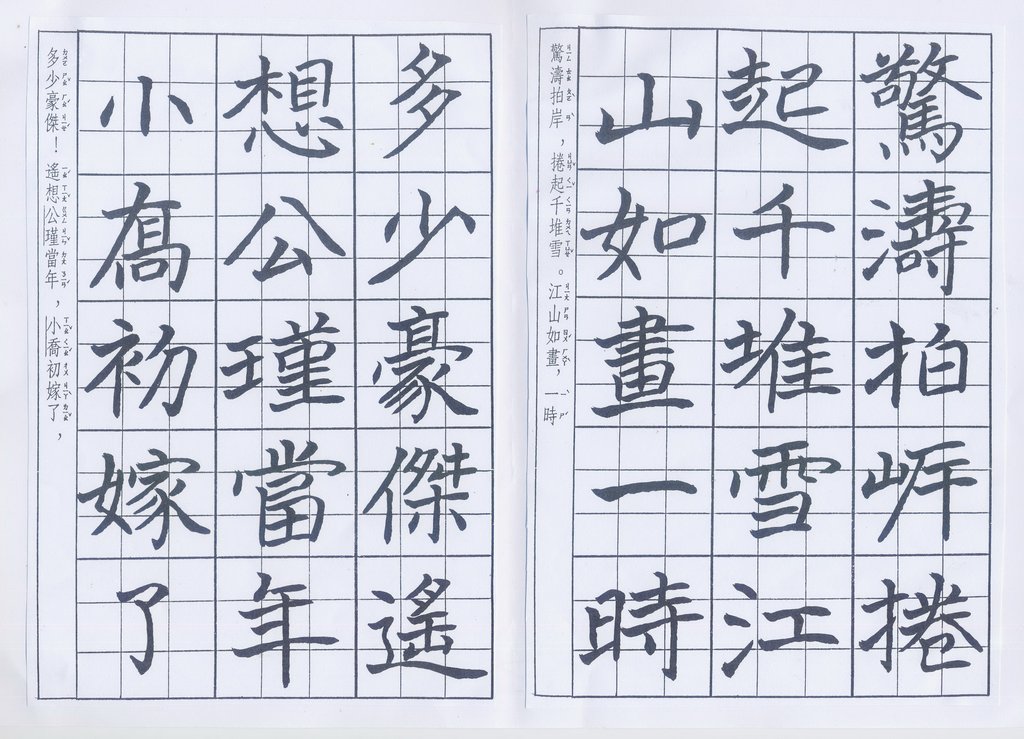 驚濤拍岸捲
起千堆雪江
山如畫一時
驚濤拍岸，捲起千堆雪。江山如畫，一時
多少豪傑遙
想公瑾當年
小喬初嫁了
多少豪傑！遙想公瑾當年，小喬初嫁了，